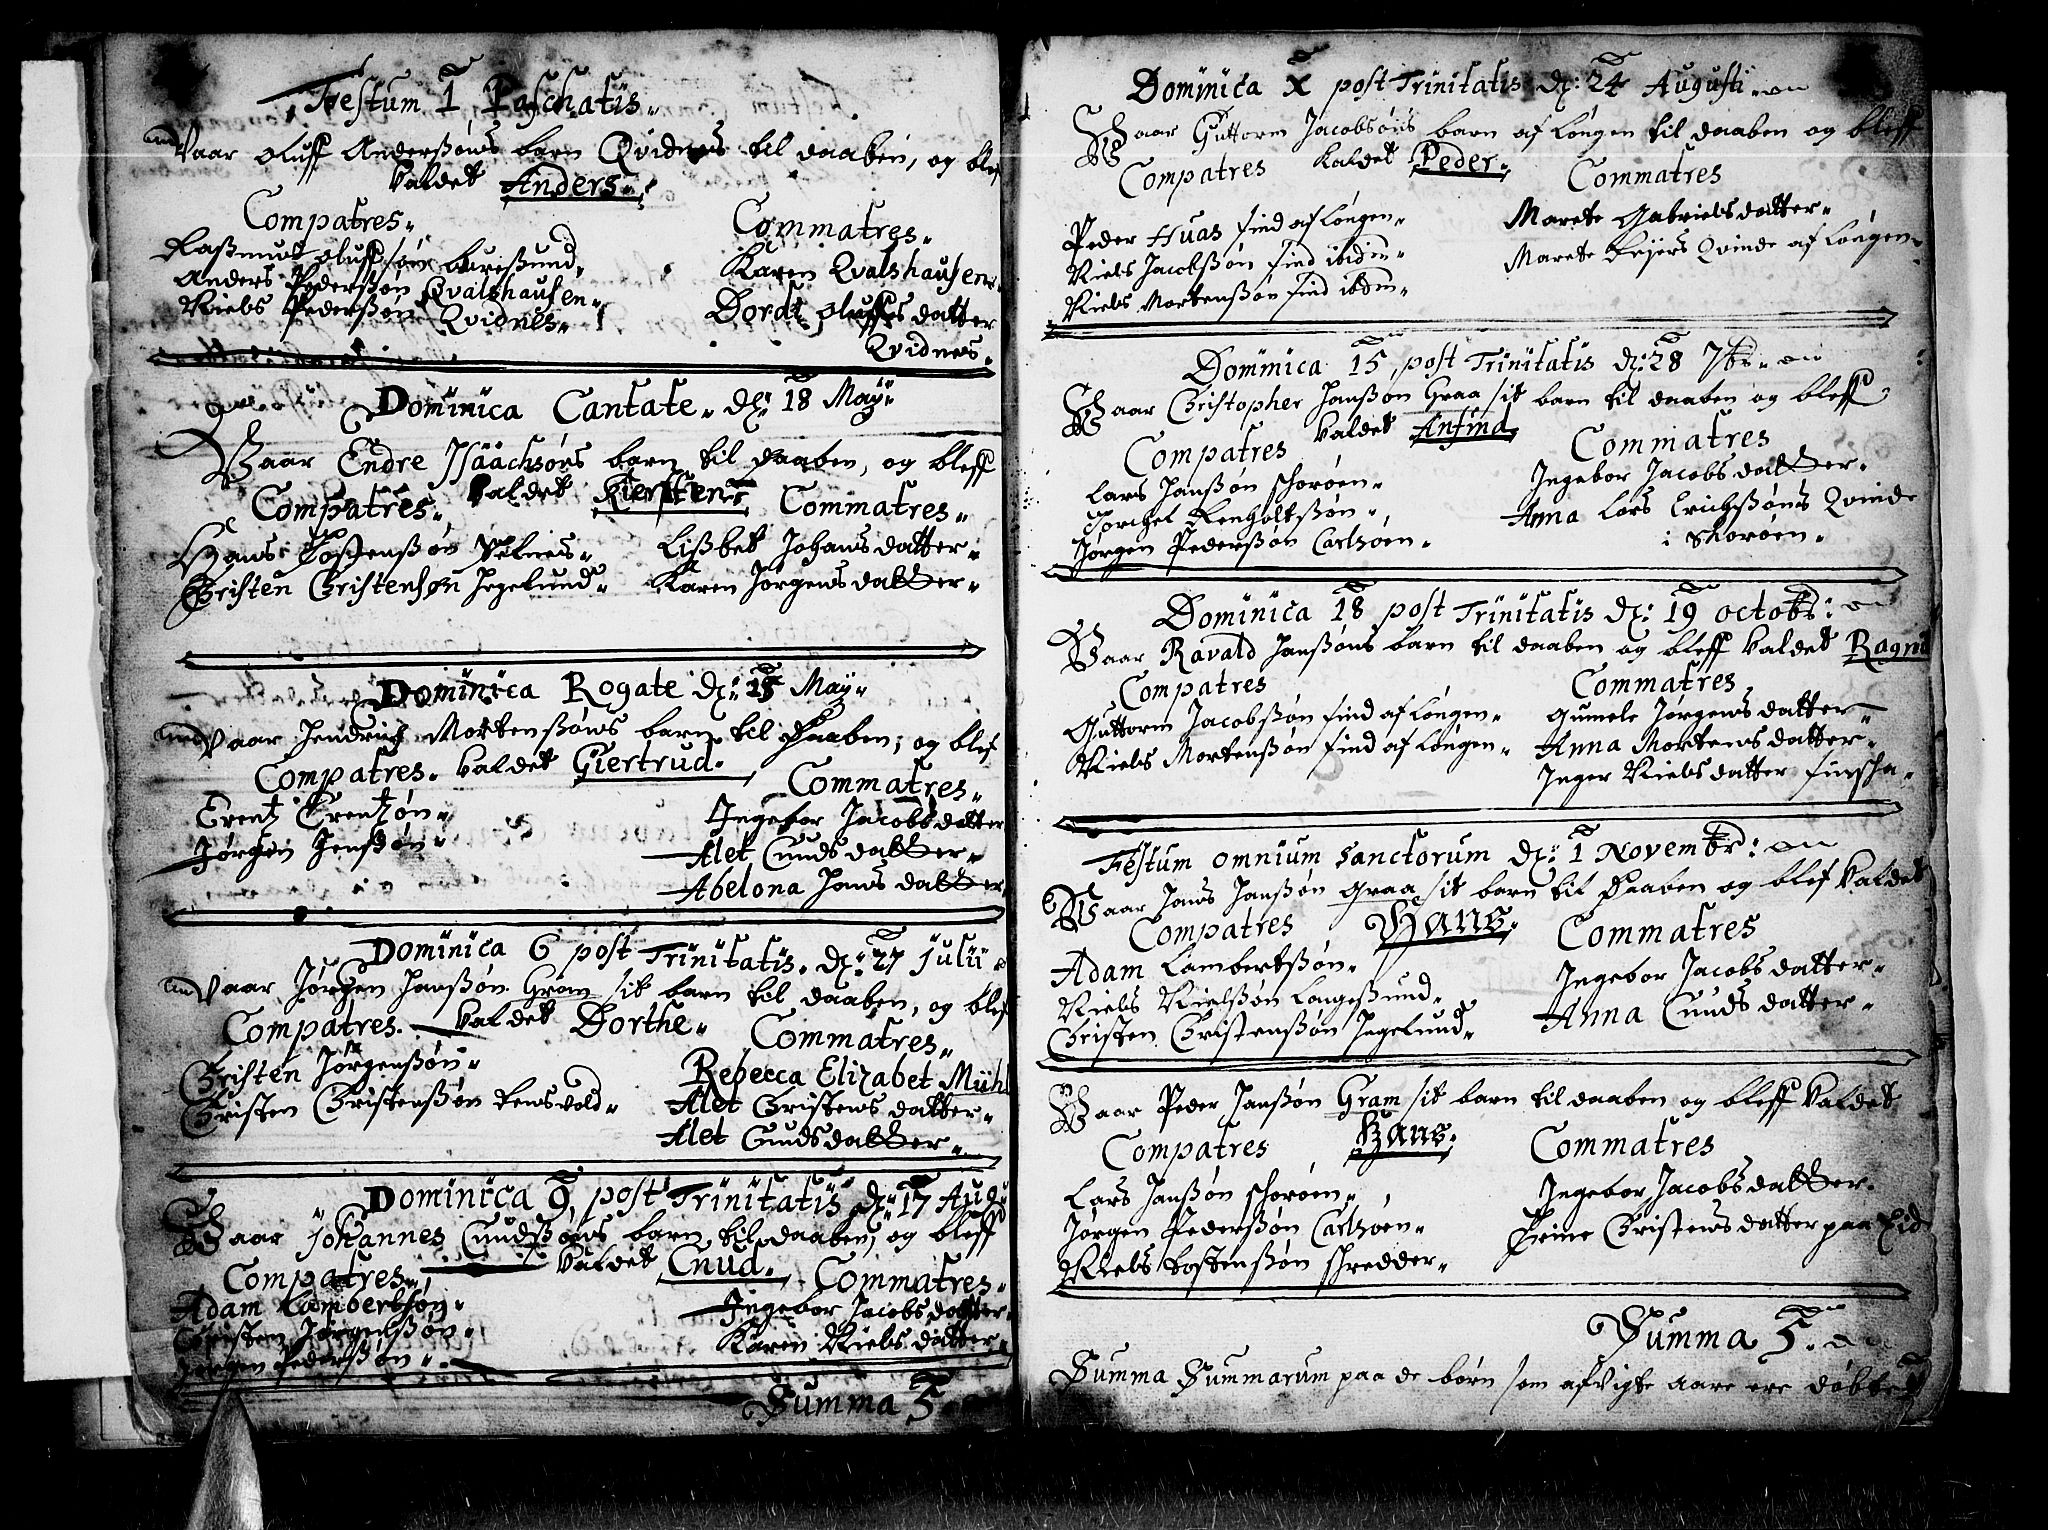 Festum 1 Paschatis.
Vaar Oluff Anderßøns barn Qvidnes til daaben, og blef
kaldet Anders.
Compatres. Commatres.
Raßmus Oluffsøn Bureßund,
Anders Pederßøn Qvalshausen.
Niels Pederßøn Qvidnes.
Karen Qvalshausens
Dordt Oluffs datter
Qvidnes.
Dominica Cantate. d: 18 May
Vaar Endre Isaachsøns barn til daaben, og bleff
kaldet Kiersten
Compatres. Commatres.
Hans Tostenßøn Selnes.
Christen Christensøn Hegelund.
Lißbet Johans datter.
Karen Jørgens datter.
Dominica Rogate d: 25 May
Vaar Hendrich Mortenßøns barn til Daaben, og blef
Compatres. kaldet Giertrud. Commatres.
Erentz Erentzøn.
Jørgen Jenßøn.
Ingebor Jacobs datter
Alet Cnuds datter.
Abelona Hans datter
Dominica 6 post Trinitatis. d: 27 Julii
Vaar Jørgen Hanßøn Gram sit barn til daaben, og blef
Compatres. kaldet Dorthe. Commatres.
Christen Jørgenßøn.
Christen Christenßøn Rensvold.
Rebecca Elizabet Mühl
Alet Christens datter.
Alet Cnuds datter.
Dominica 9, post Trinitatis d: 17 Aug
Vaar Johannes Cnudßøns barn til daaben, og bleff
kaldet Cnud.
Compatres. Commatres.
Adam Lambertsøn.
Christen Jørgenßøn.
Jørgen Pederßøn.
Ingebor Jacobs datter.
Karen Niels datter.
Summa 5.
Dominica X post Trinitatis d: 24 Augusti
Vaar Guttorm Jacobsøns barn af Løngen til daaben og bleff
Compatres kaldet Peder. Commatres
Peder Huas find af Løngen.
Niels Jacobßøn find ibidm.
Niels Mortenßøn find ibdm.
Marete Gabriels datter.
Marete Reyers Qvinde af Løngen.
Dominica 15, post Trinitatis d: 28 7br.
Vaar Christopher Hanßøn Graa sit barn til daaben og bleff
Compatres kaldet Anfind, Commatres
Lars Hanßøn Schorøen.
Torchel Renholtßøn.
Jørgen Pederßøn Carlsøen.
Ingebor Jacobs datter.
Anna Lars Erichßøns Qvinde
i Skorøen.
Dominica 18 post Trinitatis d: 19 octobr:
Vaar Ravald Hanßøns barn til daaben og bleff kaldet Ragnil
Compatres Commatres
Guttorm Jacobßøn find af Løngen.
Niels Mortenßøn find af Løngen.
Gumele Jørgens datter.
Anna Mortens datter.
Inger Niels datter
Festum omnium Sanctorum d: 1 Novembr:
Vaar Hans Hanßøn Graa sit barn til Daaben og blef kaldet
Compatres Hans. Commatres
Adam Lambertßøn.
Niels Nielßøn Langeßund.
Christen Christenßøn Hegelund.
Ingebor Jacobs datter.
Anna Cnuds datter.
Vaar Peder Hanßøn Gram sit barn til daaben og bleff kaldet
Compatres Hans. Commatres
Lars Hanßøn Schorøen.
Jørgen Pederßøn Carlsøen.
Niels Tostenßøn Schredder.
Ingebor Jacobs datter.
Trine Christens datter paa Eid
Summa 5.
Summa Summarum paa de børn som afvigte aare ere døbte